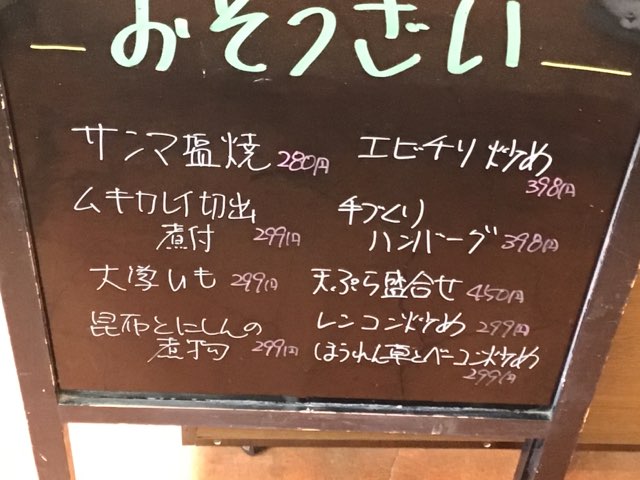 おそうざい
サンマ塩焼 280円
ムキカレイ切出
煮付 299円
大学いも 299円
昆布とにしんの
煮物 299円
エビチリ炒め
398円
手づくり
ハンバーグ 398円
天ぷら盛合せ 450円
レンコン炒め 299円
ほうれん草とベーコン炒め
299円